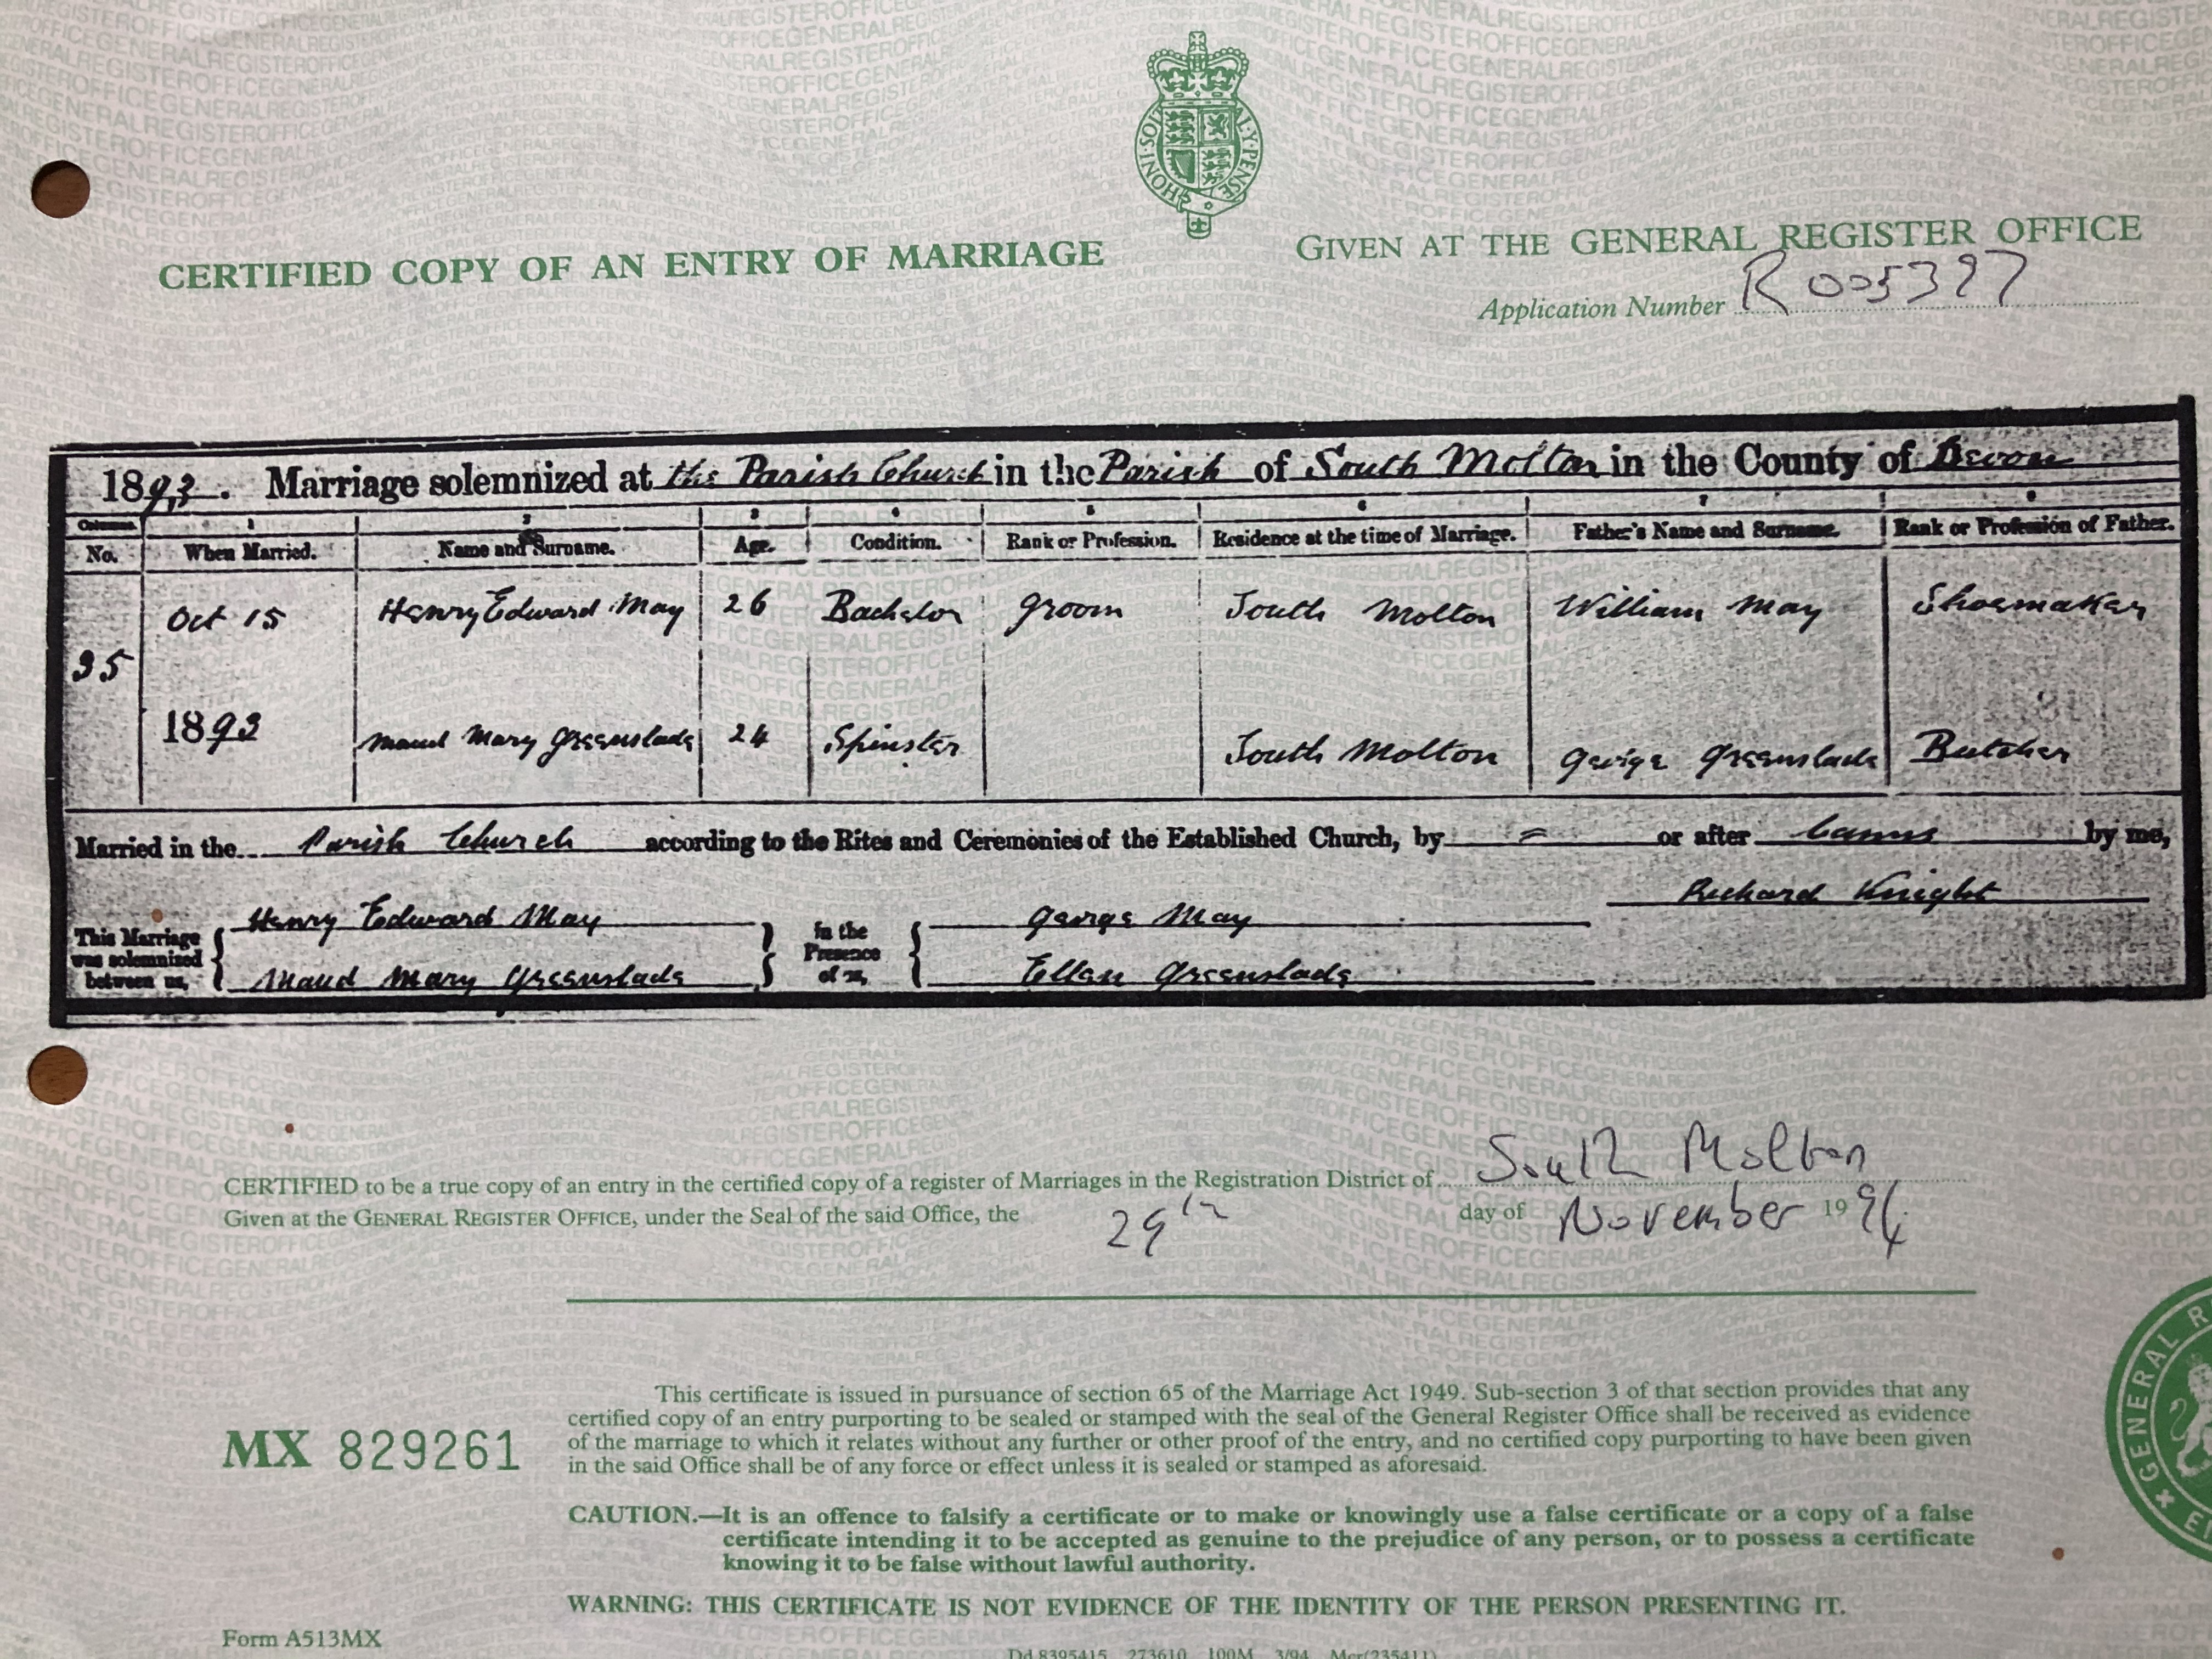 HONI·SOI AL·Y·PENSE
CERTIFIED COPY OF AN ENTRY OF MARRIAGE
GIVEN AT THE GENERAL REGISTER OFFICE
Application Number R 005397
1893. Marriage solemnized at the Parish Church in the Parish of South Molton in the County of Devon
Columns. 1 2 3 4 5 6 7 8
No. When Married. Name and Surname. Age. Condition. Rank or Profession. Residence at the time of Marriage. Father's Name and Surname. Rank or Profession of Father.
Oct 15 Henry Edward May 26 Bachelor Groom South Molton William May Shoemaker
35
1893 Maud Mary Greenslade 24 Spinster South Molton George Greenslade Butcher
Married in the Parish Church according to the Rites and Ceremonies of the Established Church, by = or after Banns by me,
Richard Knight
This Marriage was solemnized between us, Henry Edward May in the Presence of us, George May
Maud Mary Greenslade Ellen Greenslade
CERTIFIED to be a true copy of an entry in the certified copy of a register of Marriages in the Registration District of South Molton
Given at the GENERAL REGISTER OFFICE, under the Seal of the said Office, the 29th day of November 1994
This certificate is issued in pursuance of section 65 of the Marriage Act 1949. Sub-section 3 of that section provides that any
certified copy of an entry purporting to be sealed or stamped with the seal of the General Register Office shall be received as evidence
of the marriage to which it relates without any further or other proof of the entry, and no certified copy purporting to have been given
in the said Office shall be of any force or effect unless it is sealed or stamped as aforesaid.
MX 829261
CAUTION.—It is an offence to falsify a certificate or to make or knowingly use a false certificate or a copy of a false
certificate intending it to be accepted as genuine to the prejudice of any person, or to possess a certificate
knowing it to be false without lawful authority.
WARNING: THIS CERTIFICATE IS NOT EVIDENCE OF THE IDENTITY OF THE PERSON PRESENTING IT.
Form A513MX
Dd 8395415 273610 100M 3/94 Mcr(235411)
GENERAL R